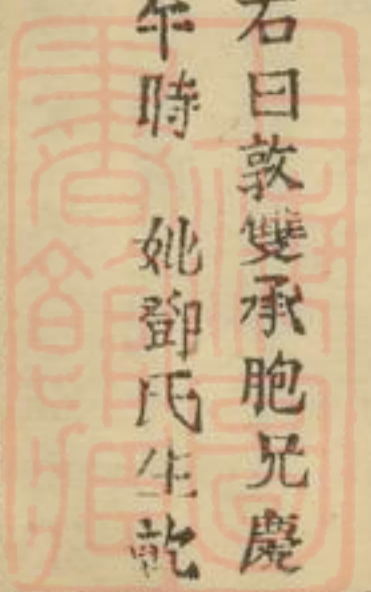 右曰敦雙承胞兄慶
午時 妣鄧氏生乾